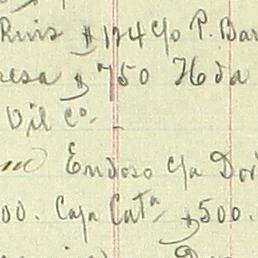 Ruis $124 c/o P. Bar
resa $750 Hda
Oil Co.
Endoso c/a Dor
00. Caja Cat^a $500.